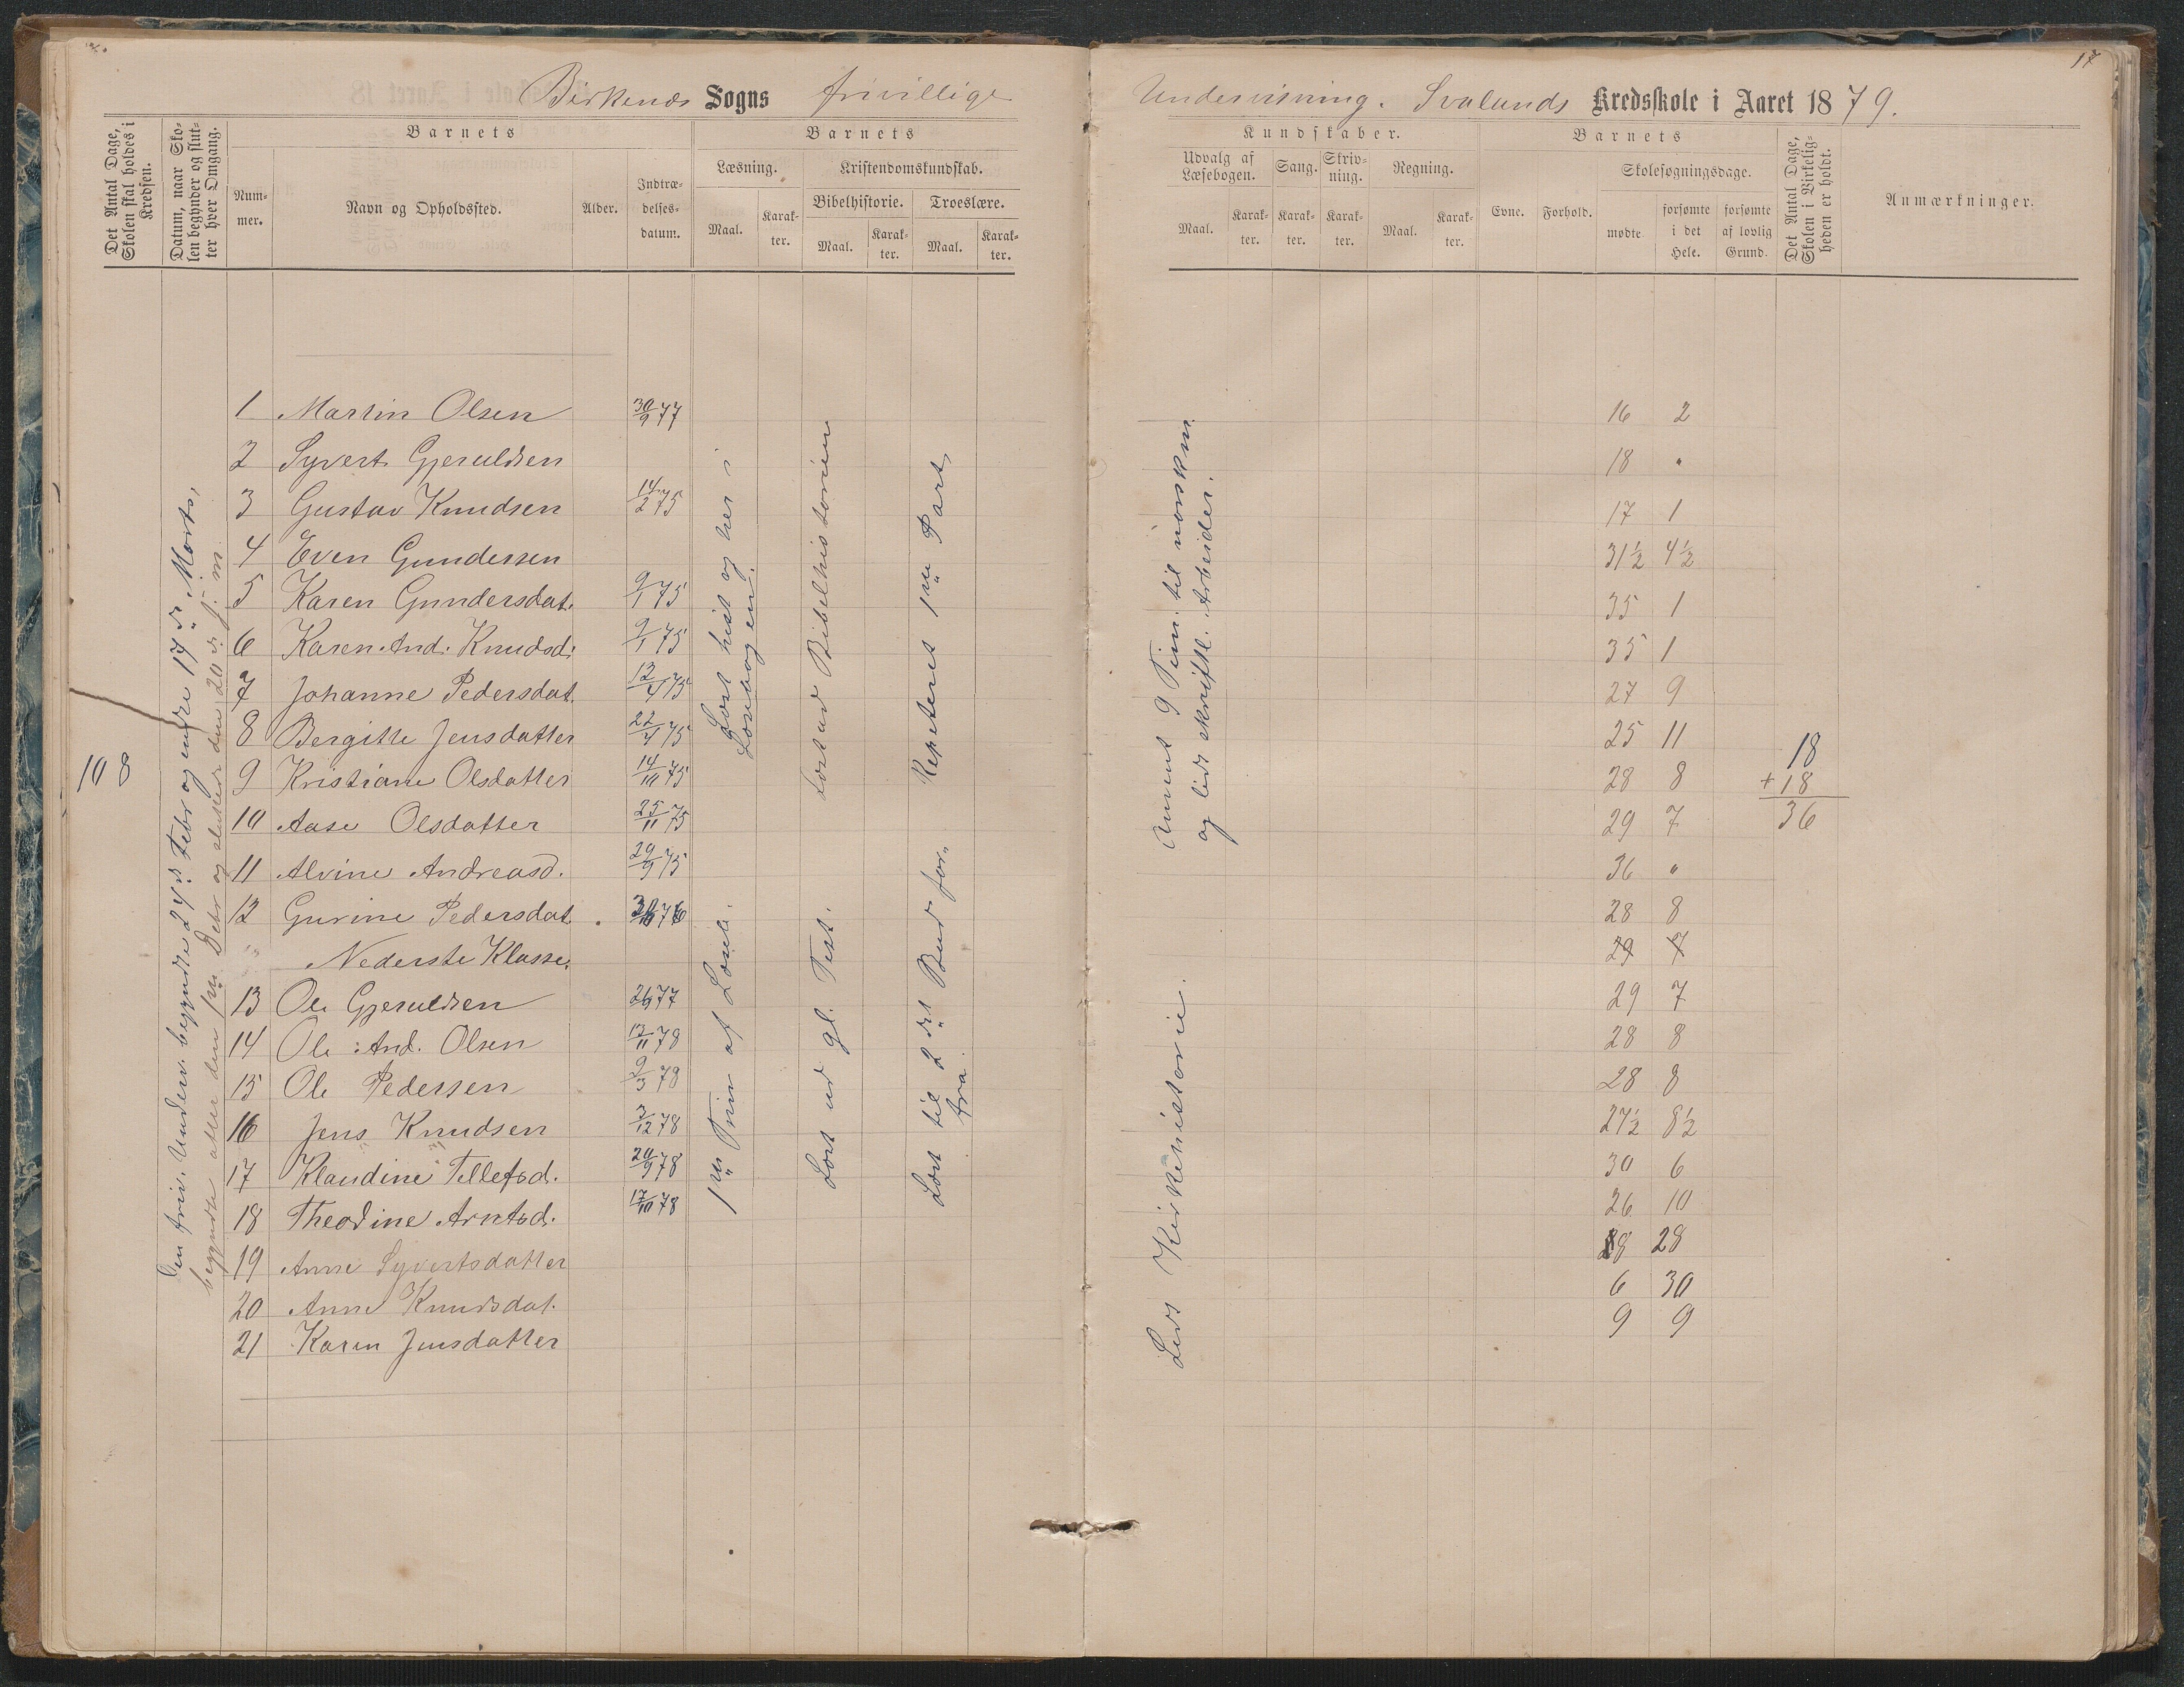 17
Birkenæs Sogns frivillige Undervisning. Svalands Kredsskole i Aaret 1879.
Det Antal Dage, Skolen skal holdes i Kredsen.
Datum, naar Skolen begynder og slutter hver Omgang.
Barnets
Nummer.
Navn og Opholdssted.
Alder.
Indtrædelsesdatum.
Barnets
Læsning.
Maal.
Karakter.
Kristendomskundskab.
Bibelhistorie.
Maal.
Karakter.
Troeslære.
Maal.
Karakter.
Kundskaber.
Udvalg af Læsebogen.
Maal.
Karakter.
Sang.
Karakter.
Skrivning.
Karakter.
Regning.
Maal.
Karakter.
Barnets
Evne.
Forhold.
Skolesøgningsdage.
mødte
forsømte i det Hele.
forsømte af lovlig Grund.
Det Antal Dage, Skolen i Virkeligheden er holdt.
Anmærkninger.
108
Den friv. Underv. begyndte 24de Febr og endte 17de Marts,
begyndte atter den 1ste Debr og sluttede den 20de s. m.
1 Martin Olsen 30/9 77 16 2
2 Syvert Gjeruldsen 18 "
3 Gustav Knudsen 14/2 75 17 1
4 Even Gundersen 31½ 4½
5 Karen Gundersdat. 9/1 75 35 1
6 Karen And. Knudsd. 9/1 75 35 1
7 Johanne Pedersdat. 12/4 75 27 9
8 Bergitte Jensdatter 22/4 75 25 11
9 Kristiane Olsdatter 14/10 75 28 8
10 Aase Olsdatter 25/11 75 29 7
11 Alvine Andreasd. 29/9 75 36 "
12 Gurine Pedersdat. 76 28 8
Nederste Klasse.
29 7
13 Ole Gjeruldsen 77 29 7
14 Ole And. Olsen 12/11 78 28 8
15 Ole Pedersen 9/3 78 28 8
16 Jens Knudsen 3/12 78 27½ 8½
17 Klaudine Tellefsd. 20/9 78 30 6
18 Theodine Arntsd. 17/10 78 26 10
19 Anne Syvertsdatter 8 28
20 Anne Knudsdat. 6 30
21 Karen Jensdatter 9 9
18
+18
36
Læst hist og her i
Læsebogen.
Læst ud Bibelhistorien
Repeteret 1ste Part,
1ste Trin af Læseb.
Læst ud gl. Test.
Læst til 2det Bud for-
fra.
9 Tim. til norskm.
og lidt skriftl. Arbeider.
Læst Kirkehistorie.